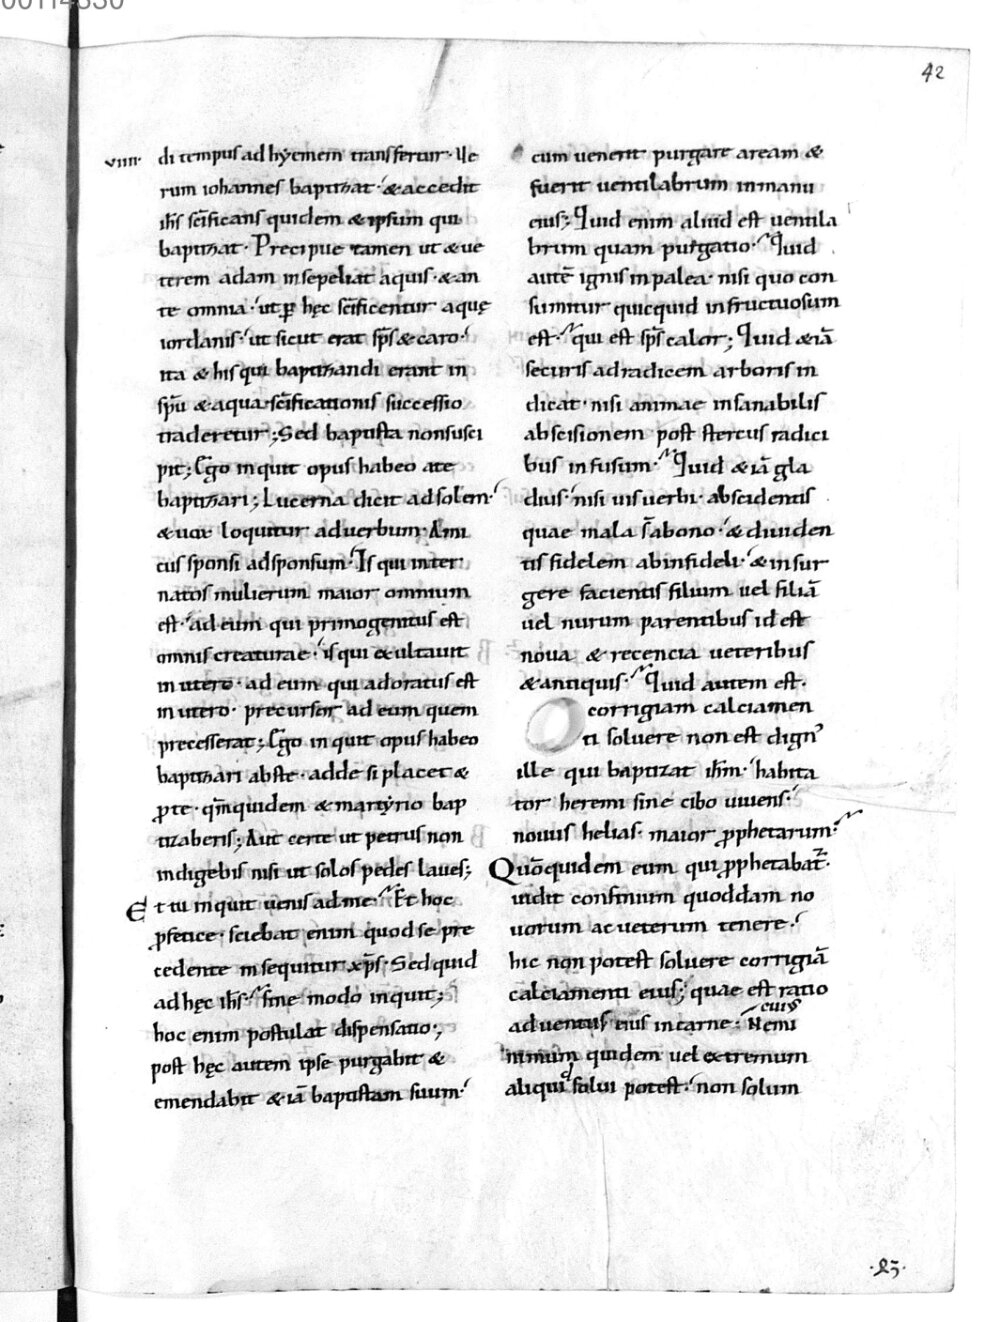 42
viiii· di tempus ad hẏemem transfertur· Ve
rum iohannes baptizat· & accedit
ih̅s sc̅ificans quidem & ipsum qui
baptizat· Precipue tamen ut & ue
terem adam insepeliat aquis· & an
te omnia· ut ꝑ hęc sc̅ificentur aquę
iordanis· ut sicut erat sp̅s & caro·
ita & his qui baptizandi erant in
sp̅u & aqua sc̅ificationis successio
traderetur; Sed baptista non susci
pit; Ego inquit opus habeo a te
baptizari; Lucerna dicit ad solem·
& uox loquitur ad uerbum· Ami
cus sponsi ad sponsum· Is qui inter
natos mulierum maior omnium
est· ad eum qui primogenitus est
omnis creaturae· is qui exultauit
in utero· ad eum qui adoratus est
in utero· precursor ad eum quem
precesserat; Ego inquit opus habeo
baptizari abs te· adde si placet &
ꝓ te· qm̅ quidem & martẏrio bap
tizaberis; Aut certe ut petrus non
indigebis nisi ut solos pedes laues;
Et tu inquit uenis ad me· Et hoc
ꝓfetice· sciebat enim quod se pre
cedente insequitur xp̅s· Sed quid
ad hęc ih̅s· sine modo inquit;
hoc enim postulat dispensatio;
post hęc autem ipse purgabit &
emendabit & iā baptistam suum·
cum uenerit purgare aream &
fuerit uentilabrum in manu
eius; Quid enim aliud est uentila
brum quam purgatio· Quid
autē ignis in palea· nisi quo con
sumitur quicquid infructuosum
est· qui est sp̅s calor; Quid & iā
securis ad radicem arboris in
dicat· nisi animae insanabilis
abscisionem post stercus radici
bus infusum· Quid & iā gla
dius· nisi uis uerbi· abscidentis
quae mala s̅ a bono· & diuiden
tis fidelem ab infideli· & insur
gere facientis filium uel filiā
uel nurum parentibus id est
noua & recencia ueteribus
& antiquis· Quid autem est·
O corrigiam calciamen
ti soluere non est dignꝰ
ille qui baptizat ih̅m· habita
tor heremi sine cibo uiuens·
nouus helias· maior ꝓphetarum·
Quō quidem eum qui ꝓphetabat̃·
uidit confinium quoddam no
uorum ac ueterum tenere·
hic non potest soluere corrigiā
calciamenti eius; quae est ratio
aduentus eius in carne· cuius Nemi
nimum quidem uel extremum
aliquid solui potest· non solum